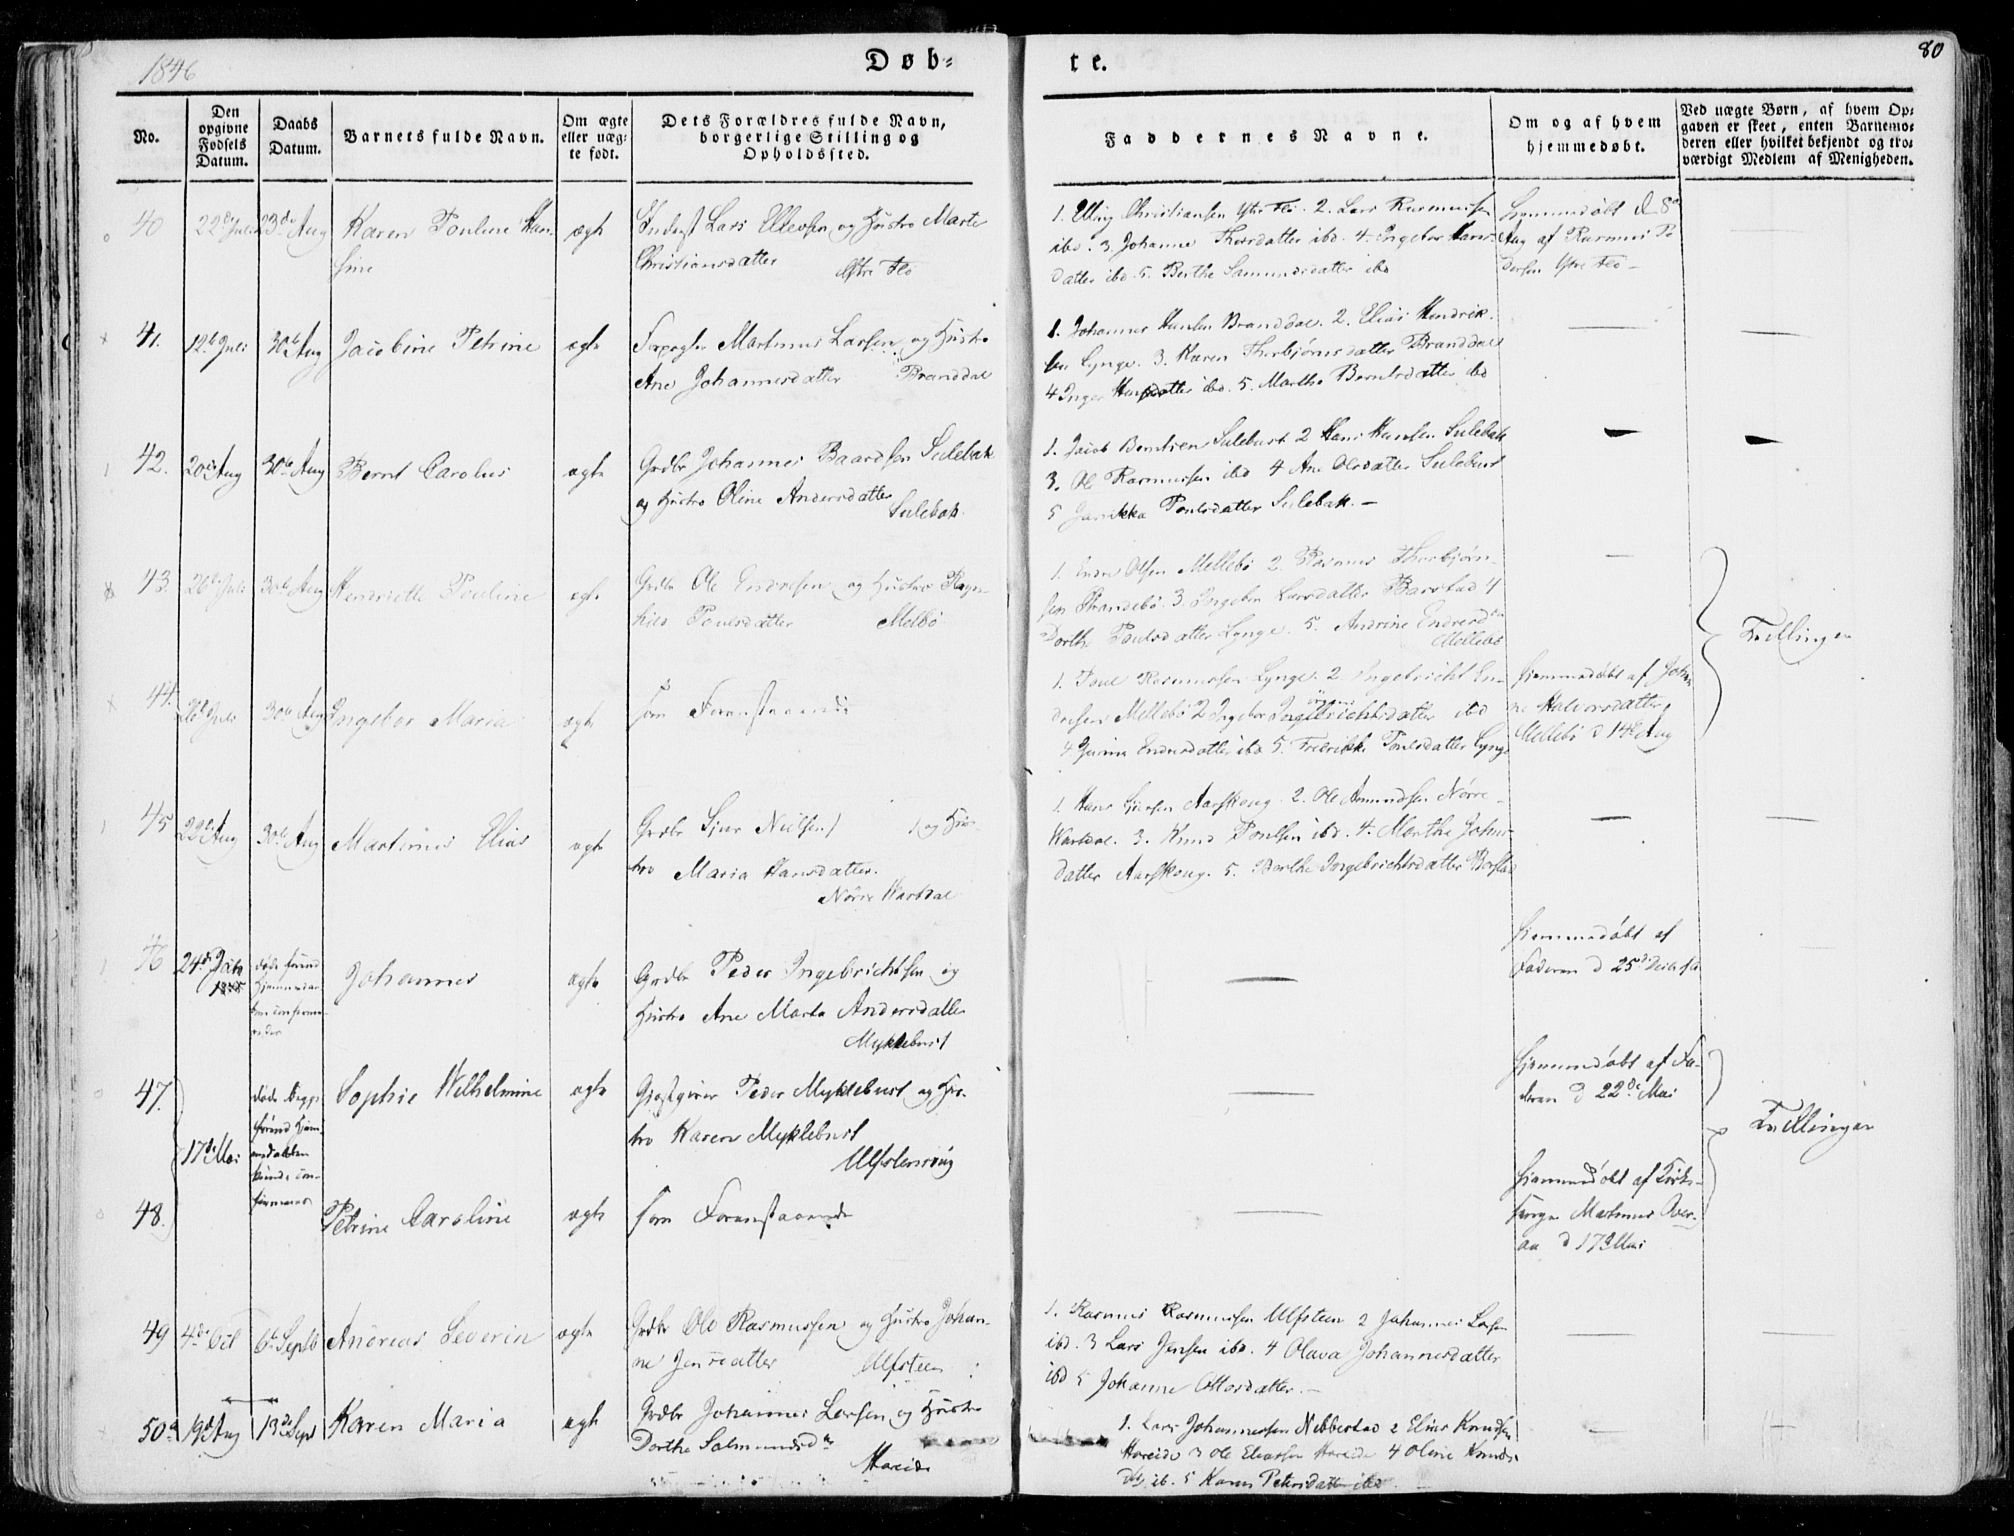 1846
Døb-
te.
80
No.
Den opgivne Fødsels Datum.
Daabs Datum.
Barnets fulde Navn.
Om ægte eller uægte født.
Dets Forældres fulde Navn, borgerlige Stilling og Opholdssted.
Faddernes Navne.
Om og af hvem hjemmedøbt.
Ved uægte Børn, af hvem Opgaven er skeet, enten Barnemoderen eller hvilket bekjendt og troværdigt Medlem af Menigheden.
40 22de Juli 23de Aug Karen Pouline Han-
sine
ægte
Lars Ellevsen og Hustro Marte
Christiansdatter Ytre Flø
1. Elling Christiansen Ytre Flø. 2. Lars Rasmussen
ibd. 3. Johanne Thorsdatter ibd. 4. Ingebor Hans-
datter ibd. 5. Berthe Samundsdatter ibd
Hjemmedøbt d 8de
Aug af Rasmus Pe
dersen Ytre Flø —
41. 12te Juli 30te Aug Jacobine Petrine ægte
Forpagter Martinus Larsen og Hustro
Ane Johannesdatter Branddal
1. Johannes Hansen Branddal. 2. Elias Hendrik-
sen Lynge. 3. Karen Thorbjørnsdatter Branddal
4 Inger Hansdatter ibd. 5. Marthe Berntsdatter ibd
42. 20de Aug 30te Aug Bernt Carolus ægte
Grdbr Johannes Baardsen Sulebak
og Hustro Oline Andersdatter
Sulebak.
1. Jacob Berntsen Sulebust 2 Hans Hansen Sulebak
3. Ole Rasmussen ibd 4 Ane Olsdatter Sulebust
5 Poulsdatter Sulebak. —
43. 26de Juli 30te Aug Henriette Pouline ægte
Grdbr Ole Endresen og Hustro Ragn-
hild Poulsdatter Melbø
1. Endre Olsen Mellebø 2. Rasmus Thorbjørn-
sen Strandebø. 3. Ingebor Larsdatter Barstad 4
Dorthe Poulsdatter Lynge. 5. Andrine Endresdtr
Mellebø
Tvillinger
44. 26de Juli 30te Aug Ingebor Maria ægte
som Foranstaaende
1. Poul Rasmussen Lynge. 2 Ingebricht En-
dresen Mellebø 2 Ingebor Ingebrichtsdatter ibd
4 Endresdatter ibd 5. Fredrikke Poulsdatter Lynge
Hjemmedøbt af Johan
ne Halvorsdatter
Mellebø d 14de Aug
45 22de Aug 30te Aug Martinus Elias ægte
Grdbr Sjur Nielsen og Hus-
tro Maria Hansdatter.
Nørre Wartdal
1. Hans Aarskoug. 2. Ole Amundsen Nørre-
Wartdal. 3. Knud Poulsen ibd. 4. Marthe Johns-
datter Aarskoug. 5. Berthe Ingebrichtsdatter Barstad
46 24de
1845
døde forend
Johannes ægte
Grdbr Peder Ingebrichtsen og
Hustro Ane Marta Andersdatter
Myklebust
Hjemmedøbt af
Faderen d 25de
47. Sophie Wilhelmine ægte
17de Mai
døde begge
forend Hjem-
medaaben
kunde con-
firmeres
Gjæstgiver Peder Myklebust og Hus-
tro Karen Myklebust
Ulfstensvig
Hjemmedøbt af Fa-
deren d 22de Mai
Tvillinger
48. Petrine Caroline ægte som Foranstaaende
Hjemmedøbt af Kirke-
sanger Martinus Over-
aa d 17de Mai
49 4de 6te Septb Andreas Severin ægte
Grdbr Ole Rasmussen og Hustro Johan-
ne Jensdatter Ulfsteen
1. Rasmus Rasmussen Ulfsteen 2 Johannes Larsen
ibd. 3 Lars Jensen ibd. 4 Olava Johannesdatter
ibd 5 Johanne Ottosdatter. —
50. 19de Aug 13de Sept Karen Maria ægte
Grdbr Johannes Larsen og Hustro
Dorthe Salmundsdtr
Hareide
1. Lars Johannessen Nebbestad 2 Elias Knudsen
Hareide 3 Ole Eliassen Hareide 4 Oline Knuds-
dtr ib. 5 Karen Petersdatter ibd.